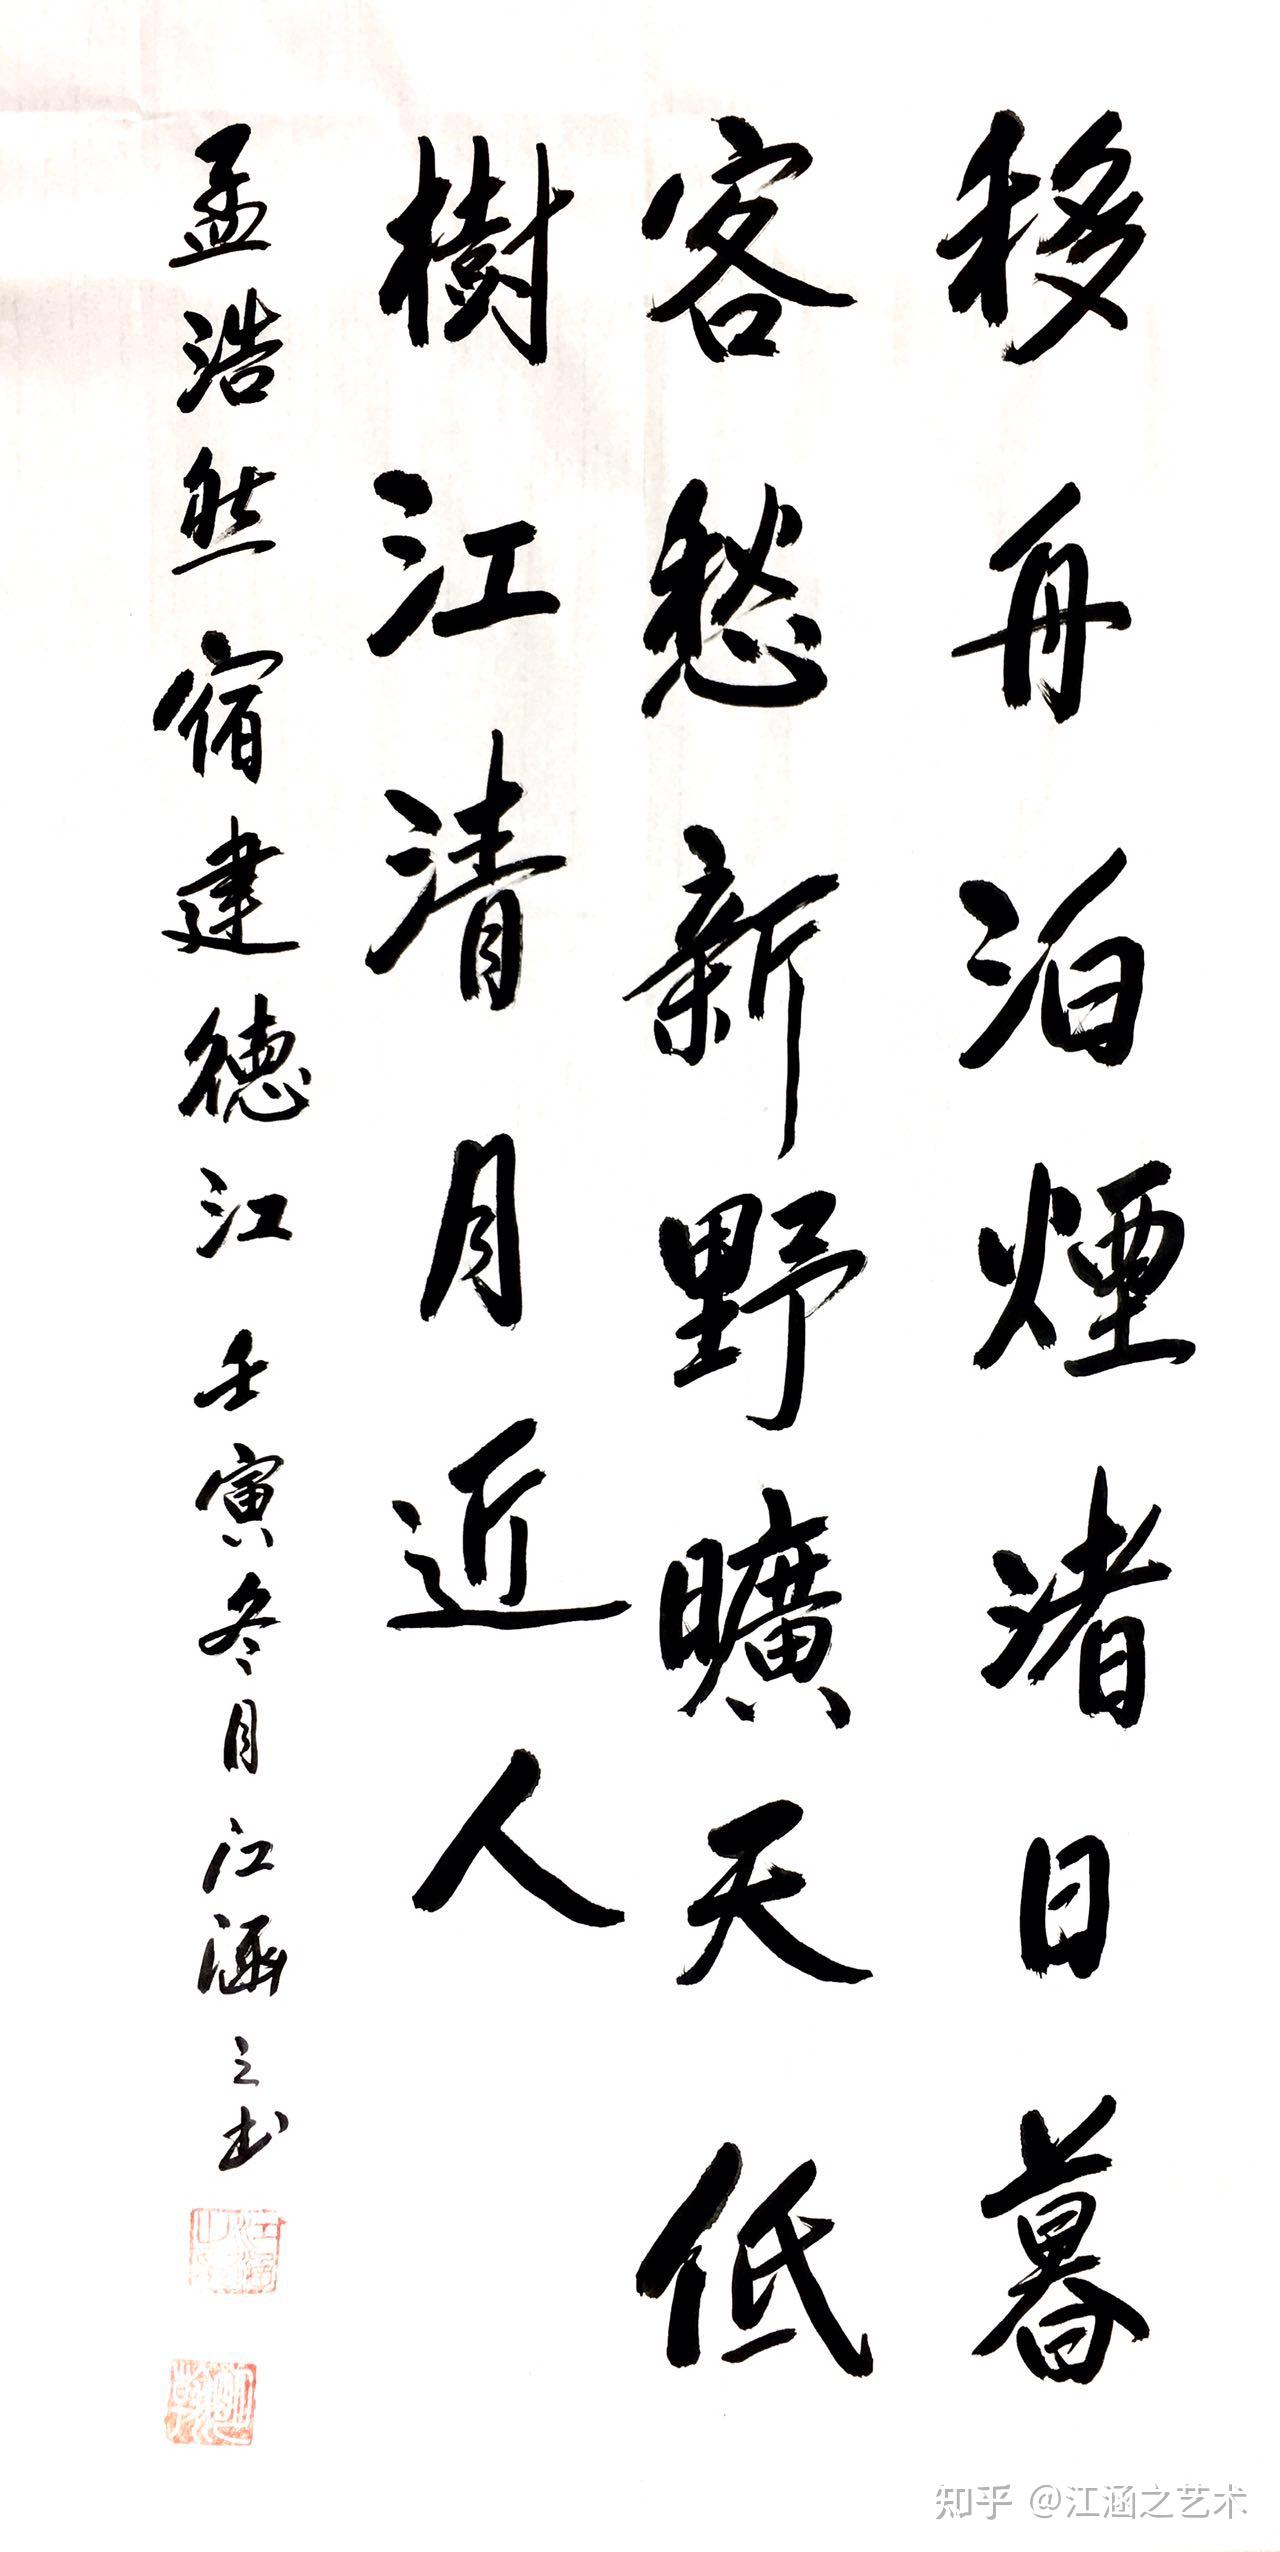 移舟泊煙渚日暮
客愁新野曠天低
樹江清月近人
孟浩然宿建德江壬寅冬月江涵之书
知乎 @江涵之艺术